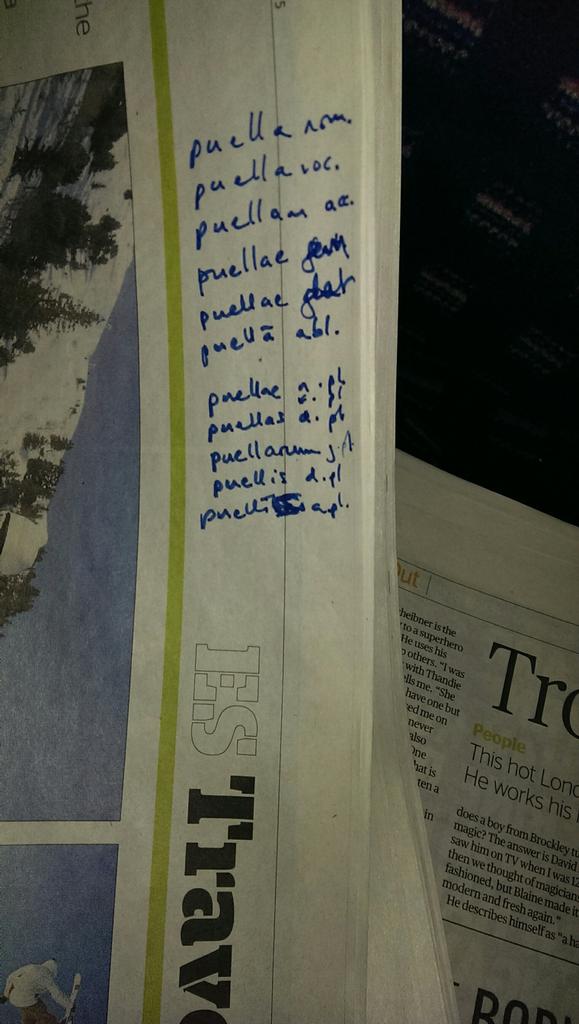 he
s
puella nom.
puella voc.
puellam acc.
puellae gen
puellae dat
puellā abl.
puellae n. pl
v. pl
puellas a. pl
puellarum g. pl
puellis d. pl
puellis a pl.
IES Trave
out
heibner is the
to a superhero
He uses his
others. "I was
with Thandie
ells me. "She
have one but
ed me on
never
also
One
hat is
ten a
in
Tro
People
This hot Lond
He works his
does a boy from Brockley tu
magic? The answer is David
saw him on TV when I was 12
then we thought of magicians
fashioned, but Blaine made it
modern and fresh again."
He describes himself as "a ha